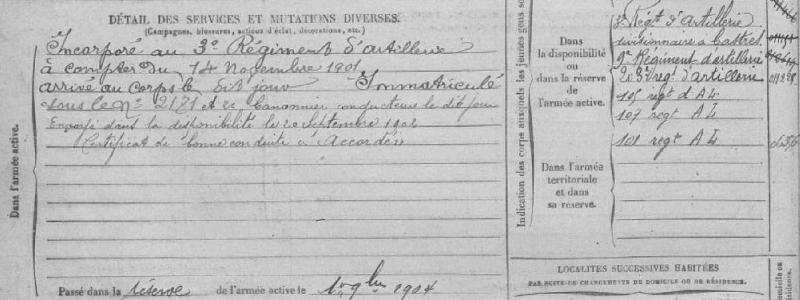 DÉTAIL DES SERVICES ET MUTATIONS DIVERSES.
(Campagnes, blessures, actions d'éclat, décorations, etc.)
Incorporé au 3e Régiment d'artillerie
à compter du 14 Novembre 1901
arrivé au corps le dit jour Immatriculé
sous le No 2171 et 2e Canonnier conducteur le dit jour
Envoyé dans la disponibilité le 20 Septembre 1902
Certificat de bonne conduite « Accordé »
Dans l'armée active.
Passé dans la réserve de l'armée active le 1er 9bre 1904
Indication des corps auxquels les jeunes gens so
Dans
la disponibilité
ou
dans la réserve
de
l'armée active.
3e Régt d'Artillerie
divisionnaire à Castres
9e Régiment d'artillerie
regt d'artillerie
105 regt d A L
107 regt A L
101 regt A L
Dans l'armée
territoriale
et dans
sa réserve.
LOCALITÉS SUCCESSIVES HABITÉES
PAR SUITE DE CHANGEMENTS DE DOMICILE OU DE RÉSIDENCE.